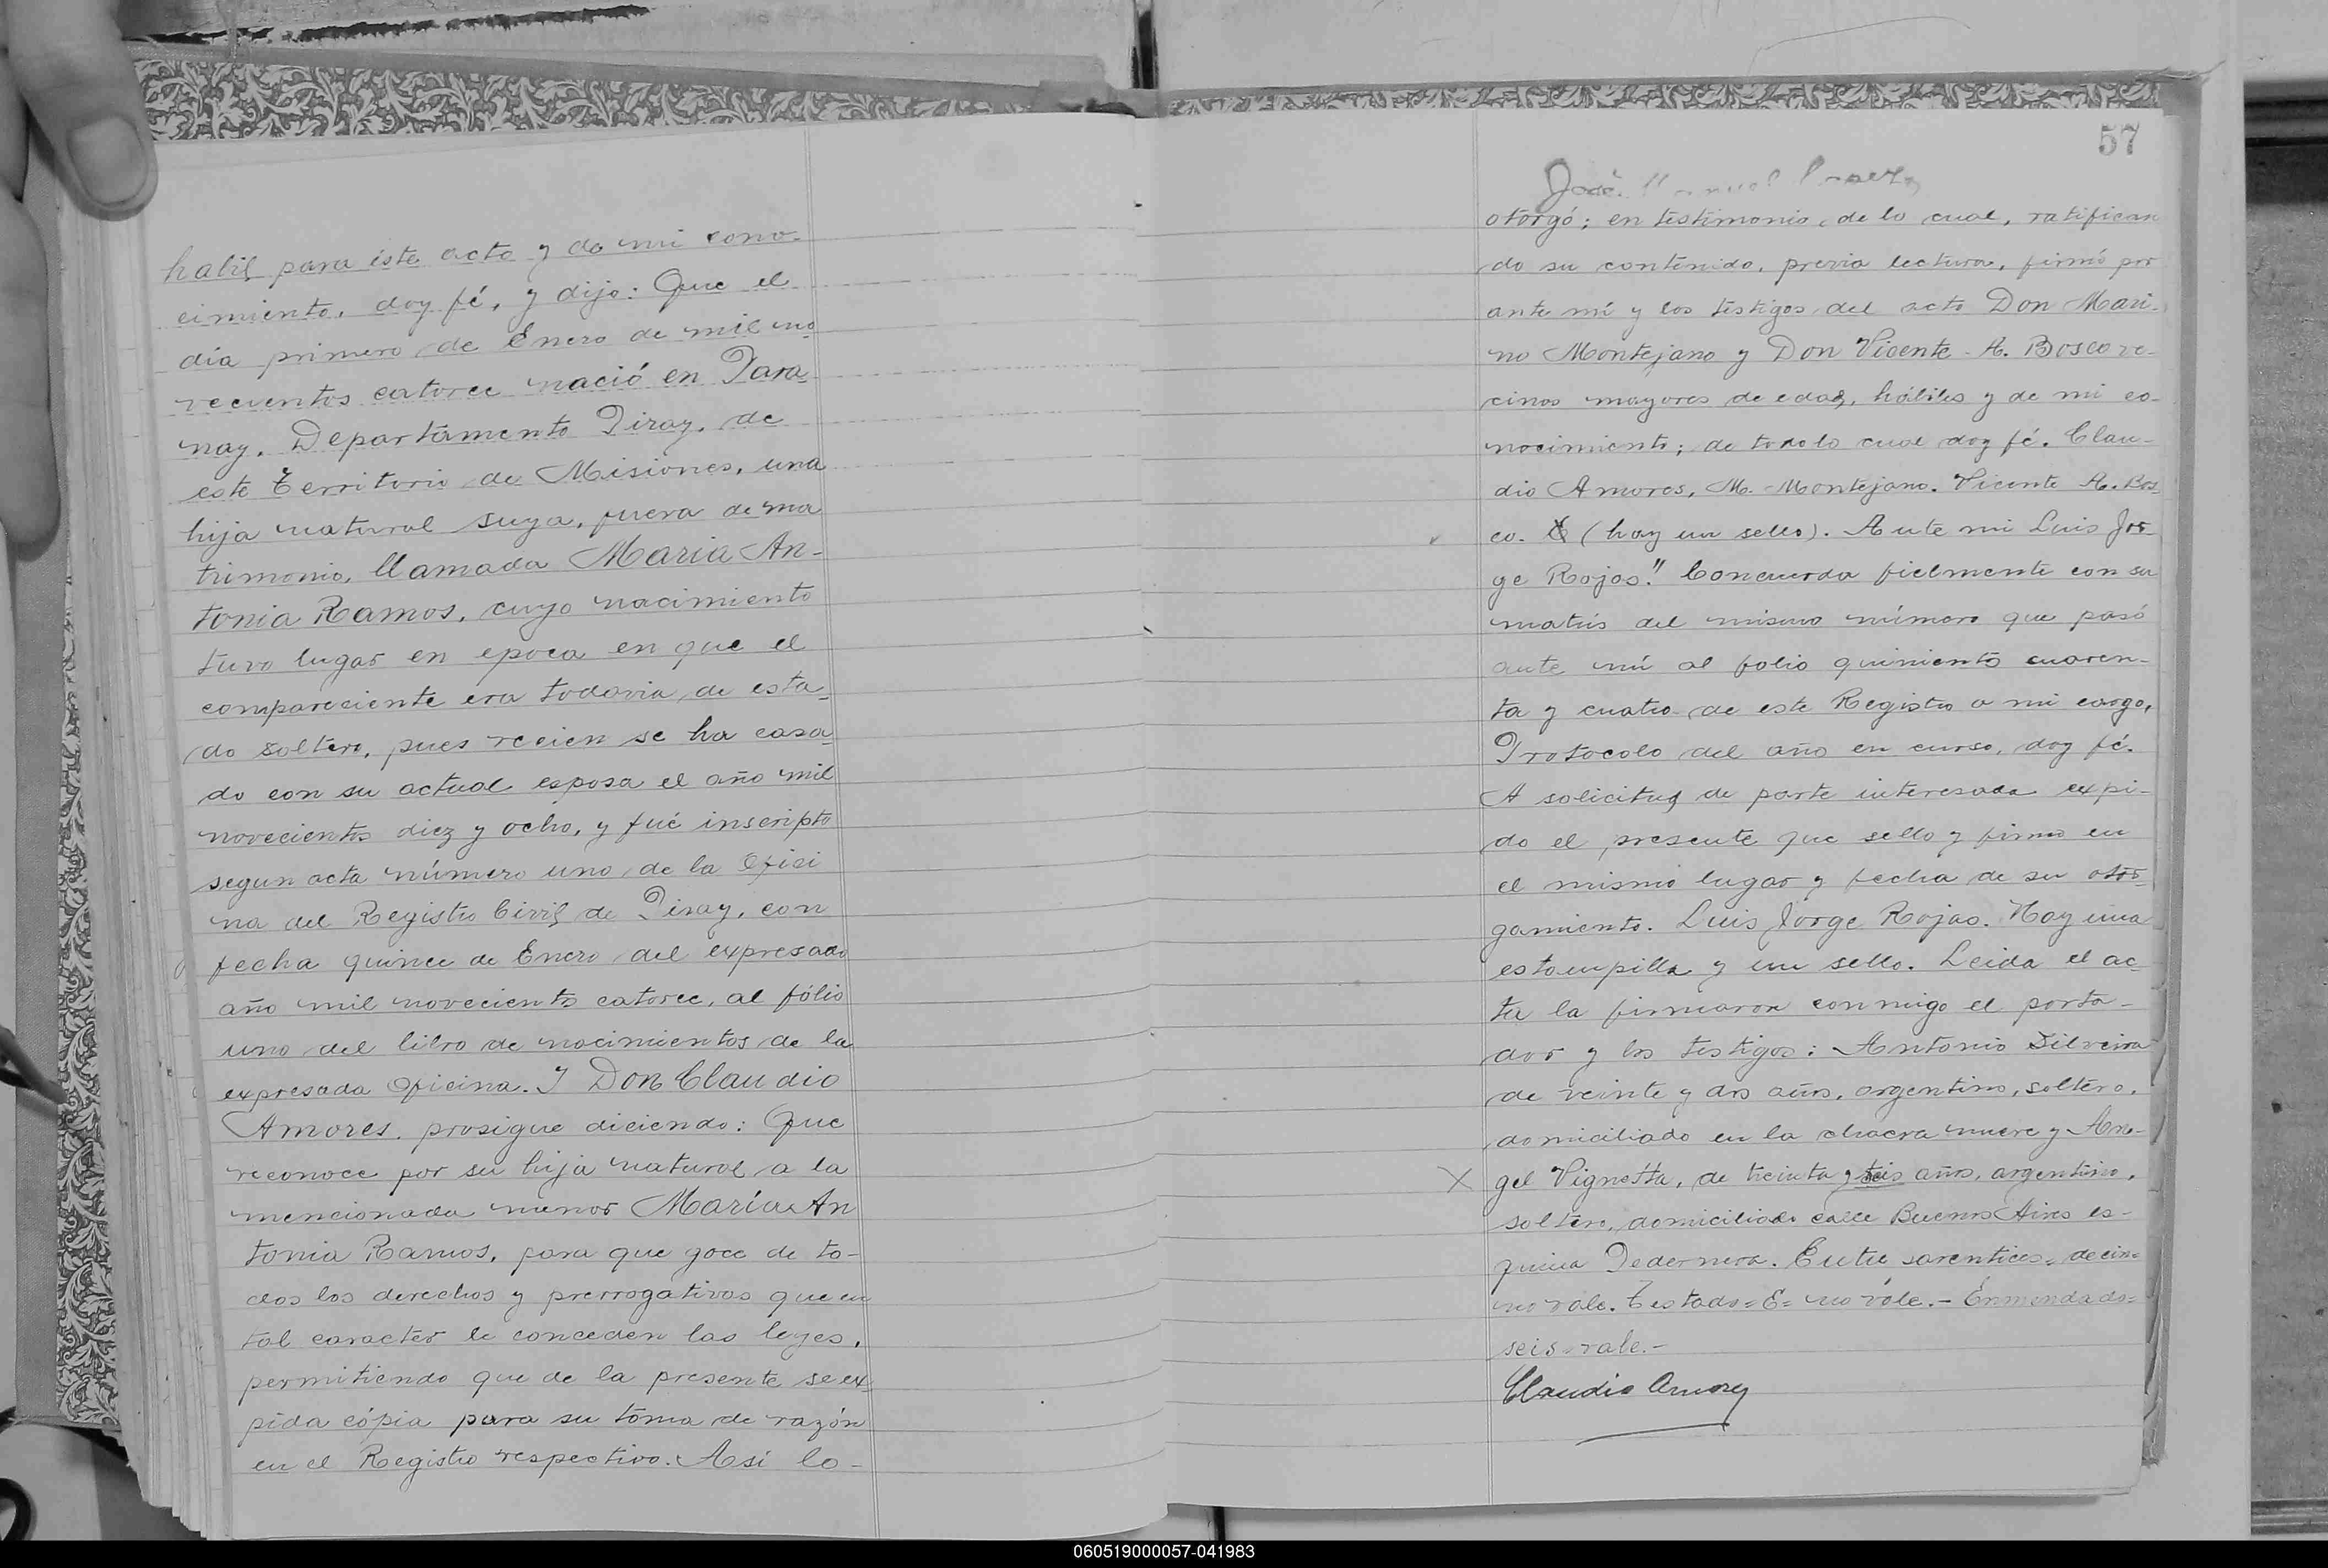 habil para este acto y de mi cono-
cimiento, doy fé, y dijo: Que el
dia primero de Enero de mil no
vecientos catorce nació en Para
nay, Departamento Piray, de
este Territorio de Misiones, una
hija natural suya, fuera de ma
trimonio, llamada Maria An-
tonia Ramos, cuyo nacimiento
tuvo lugar en epoca en que el
compareciente era todavia de esta
do soltero, pues recien se ha casa
do con su actual esposa el año mil
novecientos diez y ocho, y fué inscripto
segun acta número uno de la Ofici
na del Registro Civil de Piray, con
fecha quince de Enero del expresado
año mil novecientos catorce, al fólio
uno del libro de nacimientos de la
expresada Oficina. Y Don Claudio
Amores, prosigue diciendo: Que
reconoce por su hija natural a la
mencionada menor María An
tonia Ramos, para que goce de to-
dos los derechos y prerrogativas que en
tal caracter le conceden las leyes,
permitiendo que de la presente se ex
pida cópia para su toma de razón
en el Registro respectivo. Asi lo-
57
José Manuel
otorgó; en testimonio de lo cual, ratifican
do su contenido, previa lectura, firmó por
ante mí y los testigos del acto Don Mari-
no Montejano y Don Vicente A. Bosco ve-
cinos mayores de edad, hábiles y de mi co-
nocimiento; de todo lo cual doy fé. Clau-
dio Amores, M. Montejano. Vicente A. Bos
co. (hay un sello). Ante mi Luis Jor-
ge Rojas." Concuerda fielmente con su
matris del mismo número que pasó
ante mí al folio quiniento cuaren-
ta y cuatro de este Registro a mi cargo,
Protocolo del año en curso, doy fé.
A solicitud de parte interesada expi-
do el presente que sello y firmo en
el mismo lugar y fecha de su otor-
gamiento. Luis Jorge Rojas. Hay una
estampilla y un sello. Leida el ac-
ta la firmaron conmigo el porta-
dor y los testigos: Antonio Silveira
de veinte y dos años, argentino, soltero,
domiciliado en la chacra nueve y An-
X gel Vignetta, de treinta y seis años, argentino,
soltero, domiciliado calle Buenos Aires es-
quina Pedernera. Entre parentices=
no vale. Testado=E= no vále.- Enmendado=
seis=vale.-
Claudio Amores